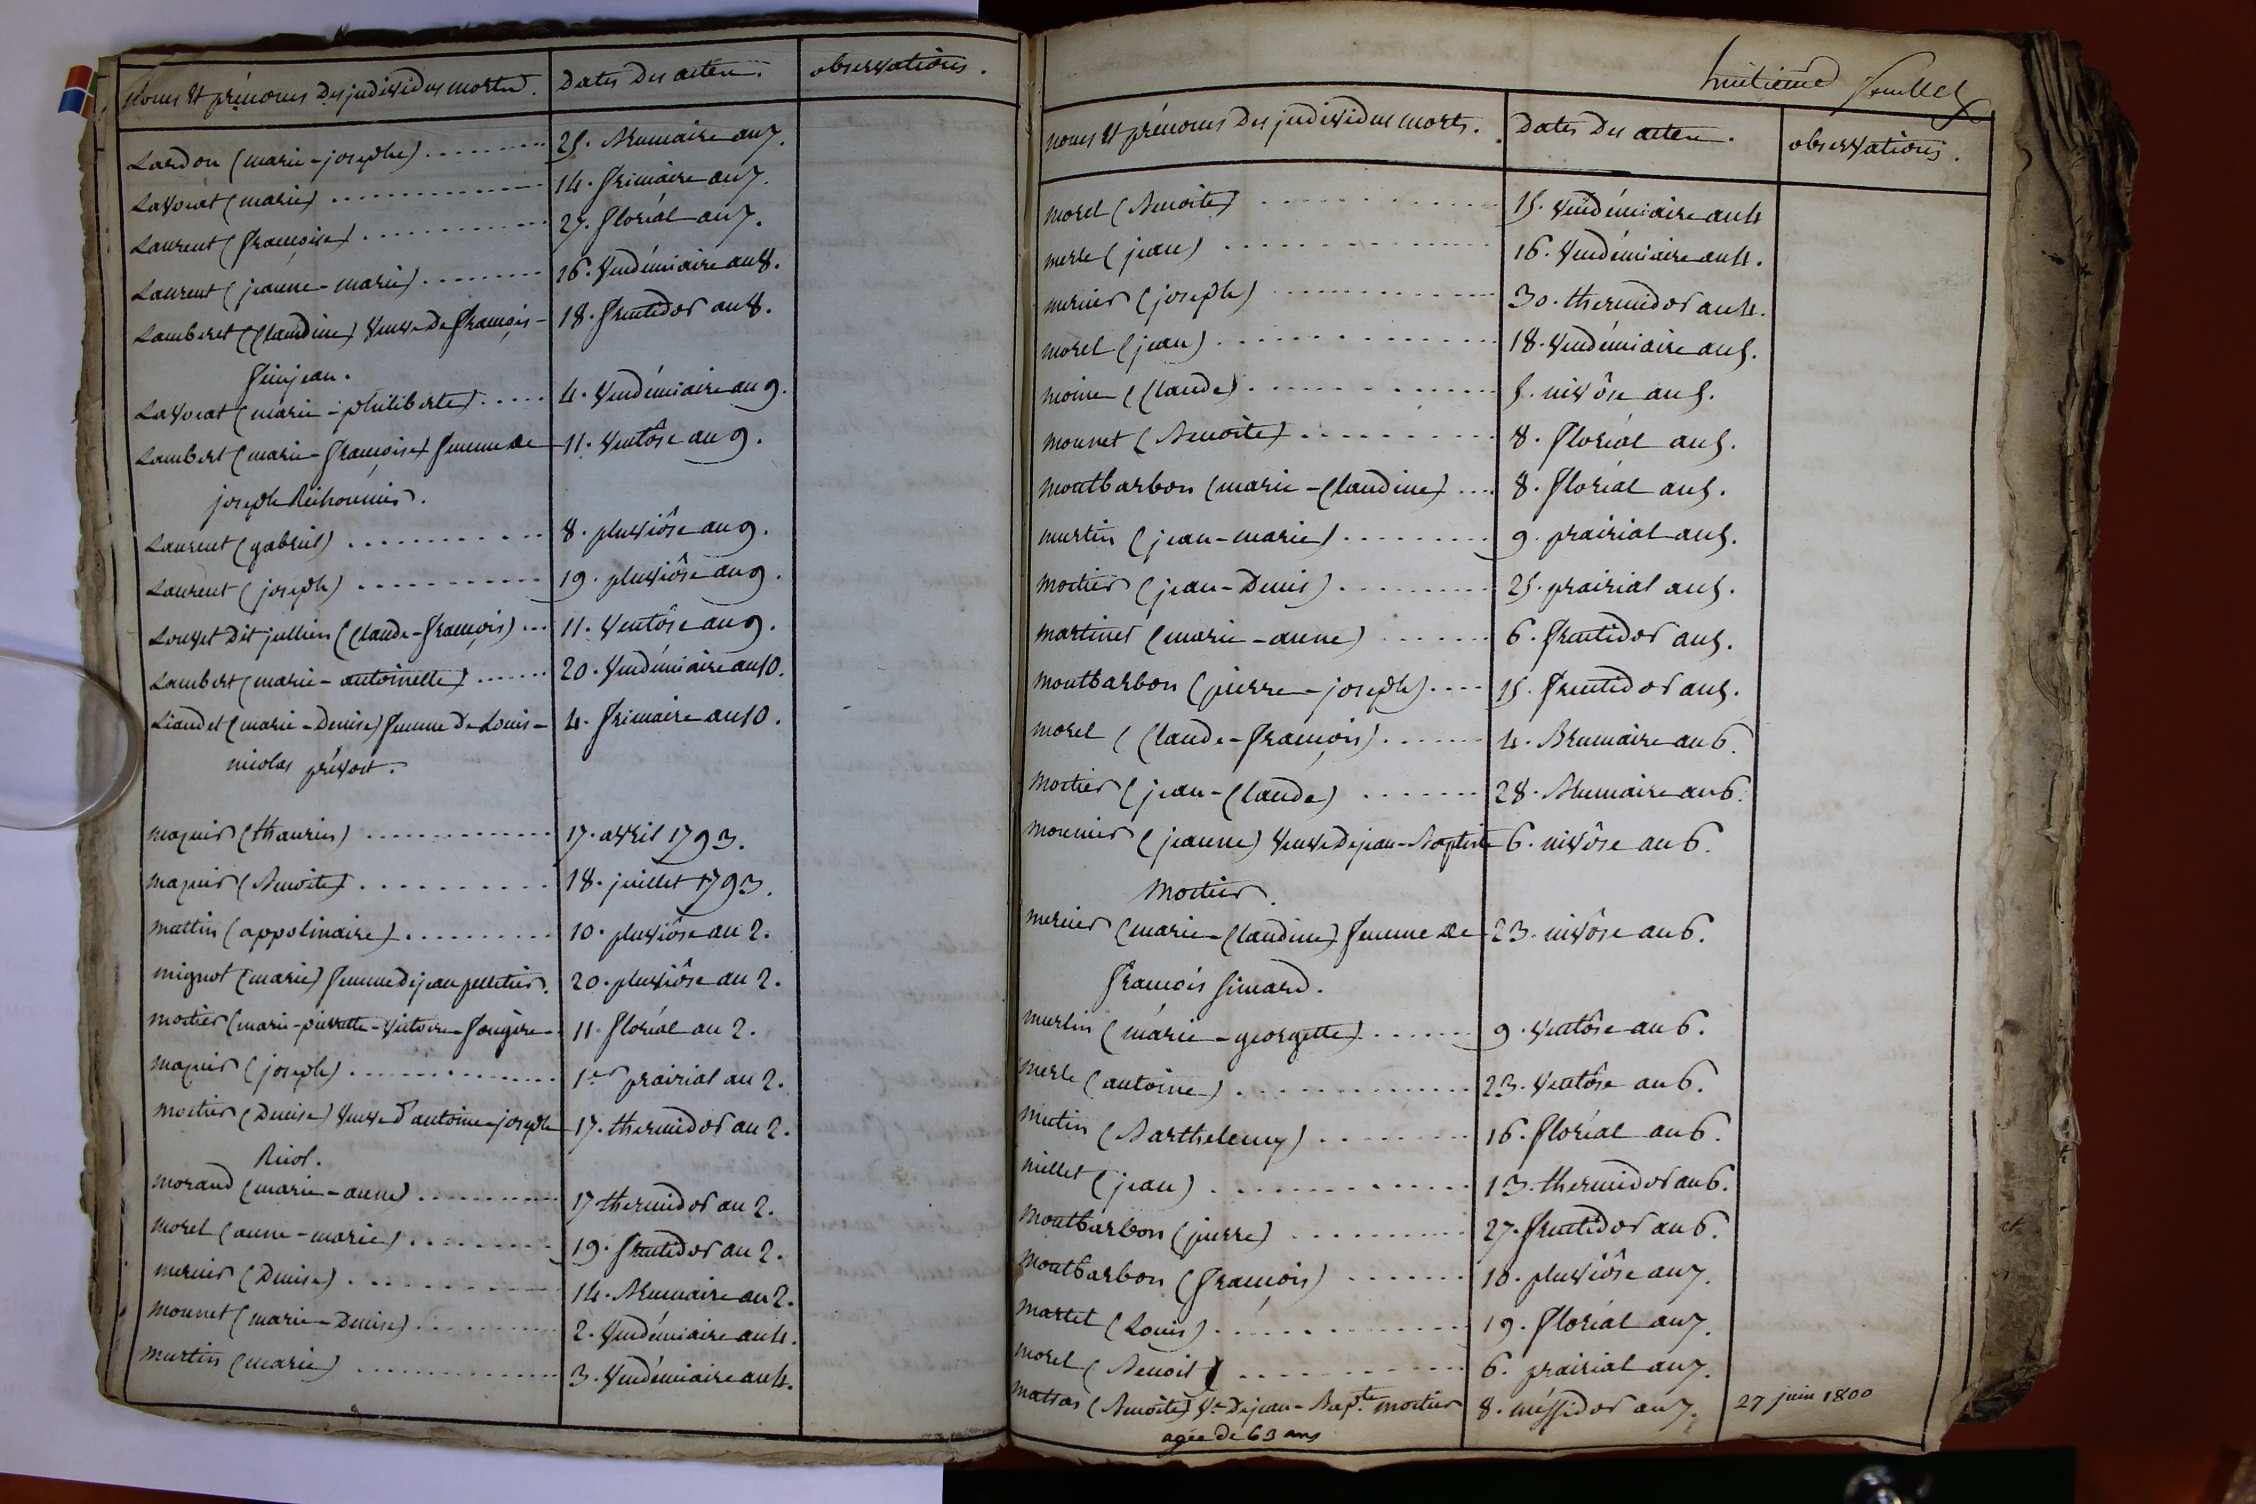 Noms et prénoms des individus morts. Dates des actes. observations.
Lardon (marie-josephe) 25. Brumaire an 7.
Lavocat (marie) 14. frimaire an 7.
Laurent (françoise) 27. floréal an 7.
Laurent (jeanne-marie) 16. Vendémiaire an 8.
Lamberet (Claudine) veuve de françois- 18. fructidor an 8.
Lavocat (marie-philiberte) 4. Vendémiaire an 9.
Lambert (marie-françoise) femme de 11. Ventôse an 9.
joseph
Laurent (gabriel) 8. pluviôse an 9.
Laurent (joseph) 19. pluviôse an 9.
Louvet dit jullien (Claude-françois) 11. Ventôse an 9.
Lambert (marie-antoinette) 20. Vendémiaire an 10.
Liaudet (marie-Denise) femme de Louis- 4. frimaire an 10.
nicolas prévost.
mazuir (thaurin) 17. avril 1793.
mazuir (Benoite) 18. juillet 1793.
mattin (appolinaire) 10. pluviôse an 2.
mignot (marie) femme de jean pelletier. 20. pluviôse an 2.
mortier (marie-pierrette-victoire-fougère- 11. floréal an 2.
mazuir (joseph) 1er prairial an 2.
mortier (Denise) veuve d'antoine-joseph 17. thermidor an 2.
morand (marie-anne) 17 thermidor an 2.
morel (anne-marie) 19. fructidor an 2.
mercier (Denise) 14. Brumaire an 2.
monnet (marie-Denise) 2. Vendémiaire an 4.
murtin (marie) 3. Vendémiaire an 4.
huitieme feuillet
Noms et prénoms des individus morts. Dates des actes. observations.
morel (Benoite) 15. Vendémiaire an 4
merle (jean) 16. Vendémiaire an 4.
mercier (joseph) 30. thermidor an 4.
morel (jean) 18. Vendémiaire an 5.
moine (Claude) 5. nivôse an 5.
monnet (Benoite) 8. floréal an 5.
montbarbon (marie-Claudine) 8. floréal an 5.
murtin (jean-marie) 9. prairial an 5.
mortier (jean-Denis) 25. prairial an 5.
martinet (marie-anne) 6. fructidor an 5.
montbarbon (pierre-joseph) 15. fructidor an 5.
morel (Claude-françois) 4. Brumaire an 6.
mortier (jean-Claude) 28. Brumaire an 6.
monnier (jeanne) veuve de jean-Baptiste 6. nivôse an 6.
mortier.
mercier (marie-Claudine) femme de 23. nivôse an 6.
françois simard.
murtin (marie-georgette) 9. Ventôse an 6.
merle (antoine) 23. Ventôse an 6.
mutin (Barthelemy) 16. floréal an 6.
millet (jean) 13. thermidor an 6.
montbarbon (pierre) 27. fructidor an 6.
montbarbon (françois) 10. pluviôse an 7.
martel (Louis) 19. floréal an 7.
morel (Benoit) 6. prairial an 7.
(Benoite) Ve de jean-Bapte. mortier 8. méssidor an 7. 27 juin 1800
agée de 63 ans